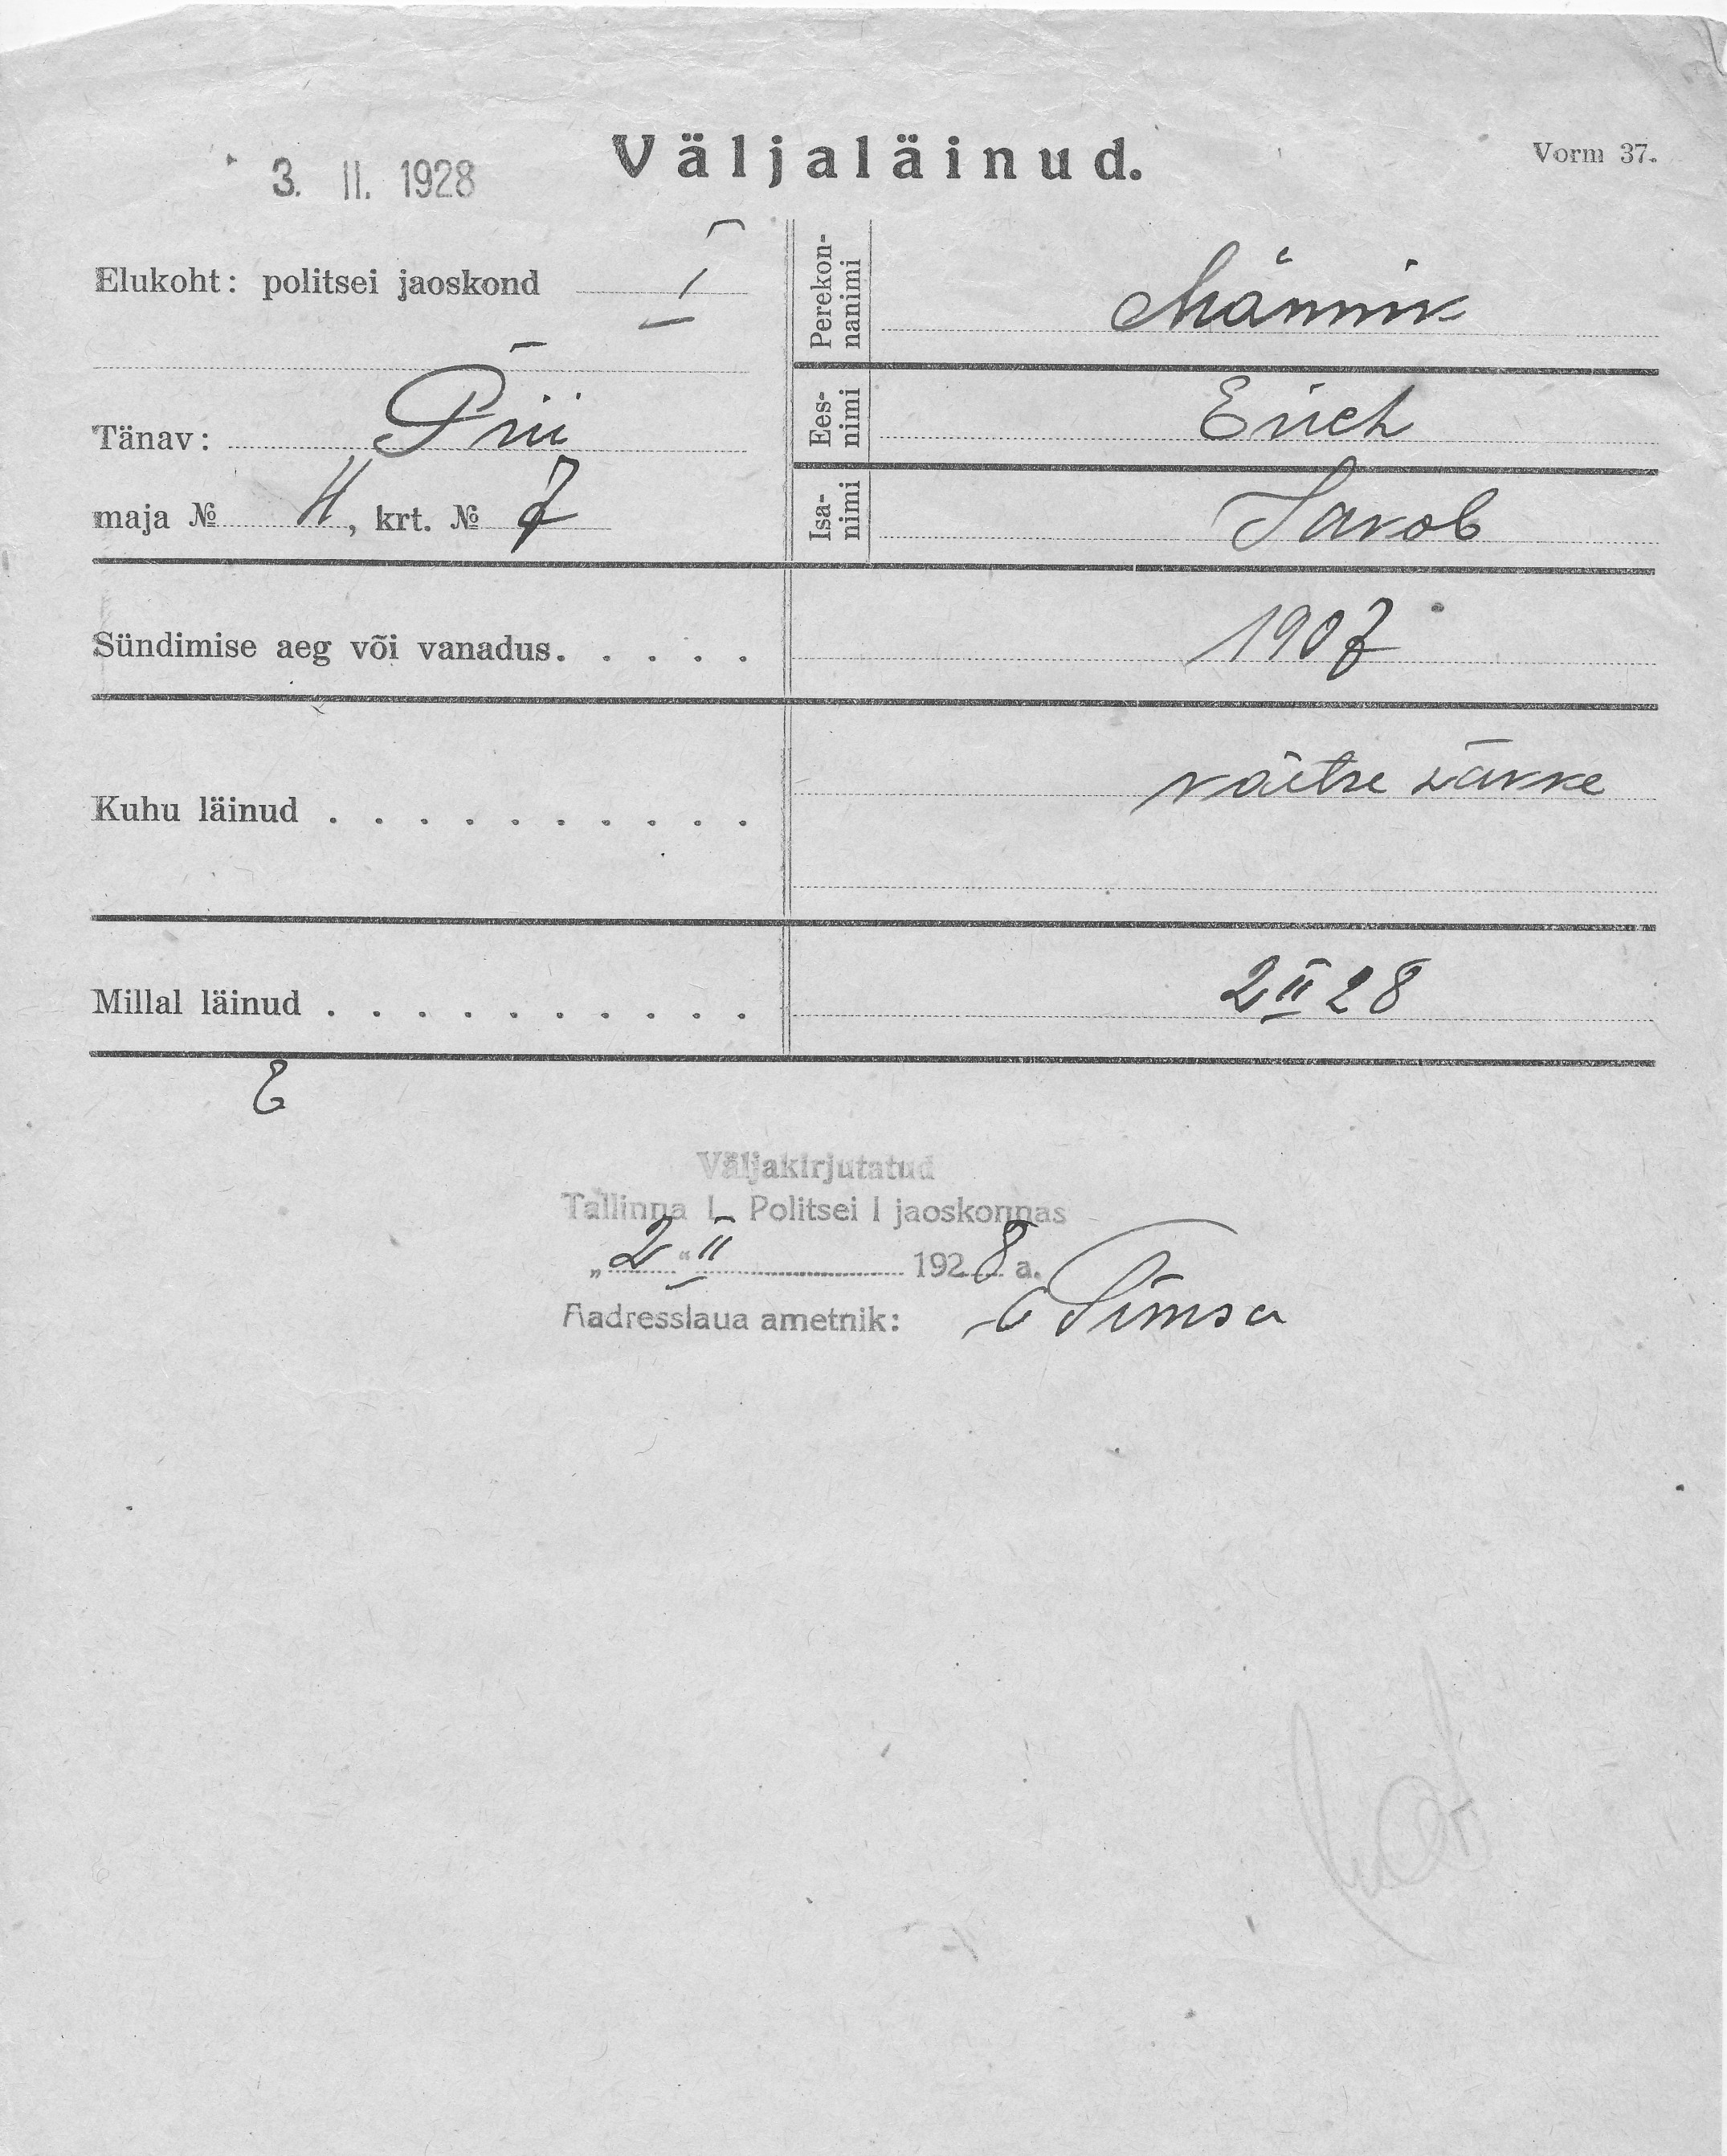 3. II. 1928
Väljaläinud.
Vorm 37.
Elukoht: politsei jaoskond I
Perekon-
nanimi
Männik
Tänav: Prii
Ees-
nimi
Erich
maja № 4, krt. № 7
Isa-
nimi
Jakob
Sündimise aeg või vanadus. . . . .
1907
Kuhu läinud . . . . . . . . . .
käitse väkke
Millal läinud . . . . . . . . . .
2 II 28
Väljakirjutatud
Tallinna L. Politsei I jaoskonnas
„ 2 “ II 1928 a.
Aadresslaua ametnik: